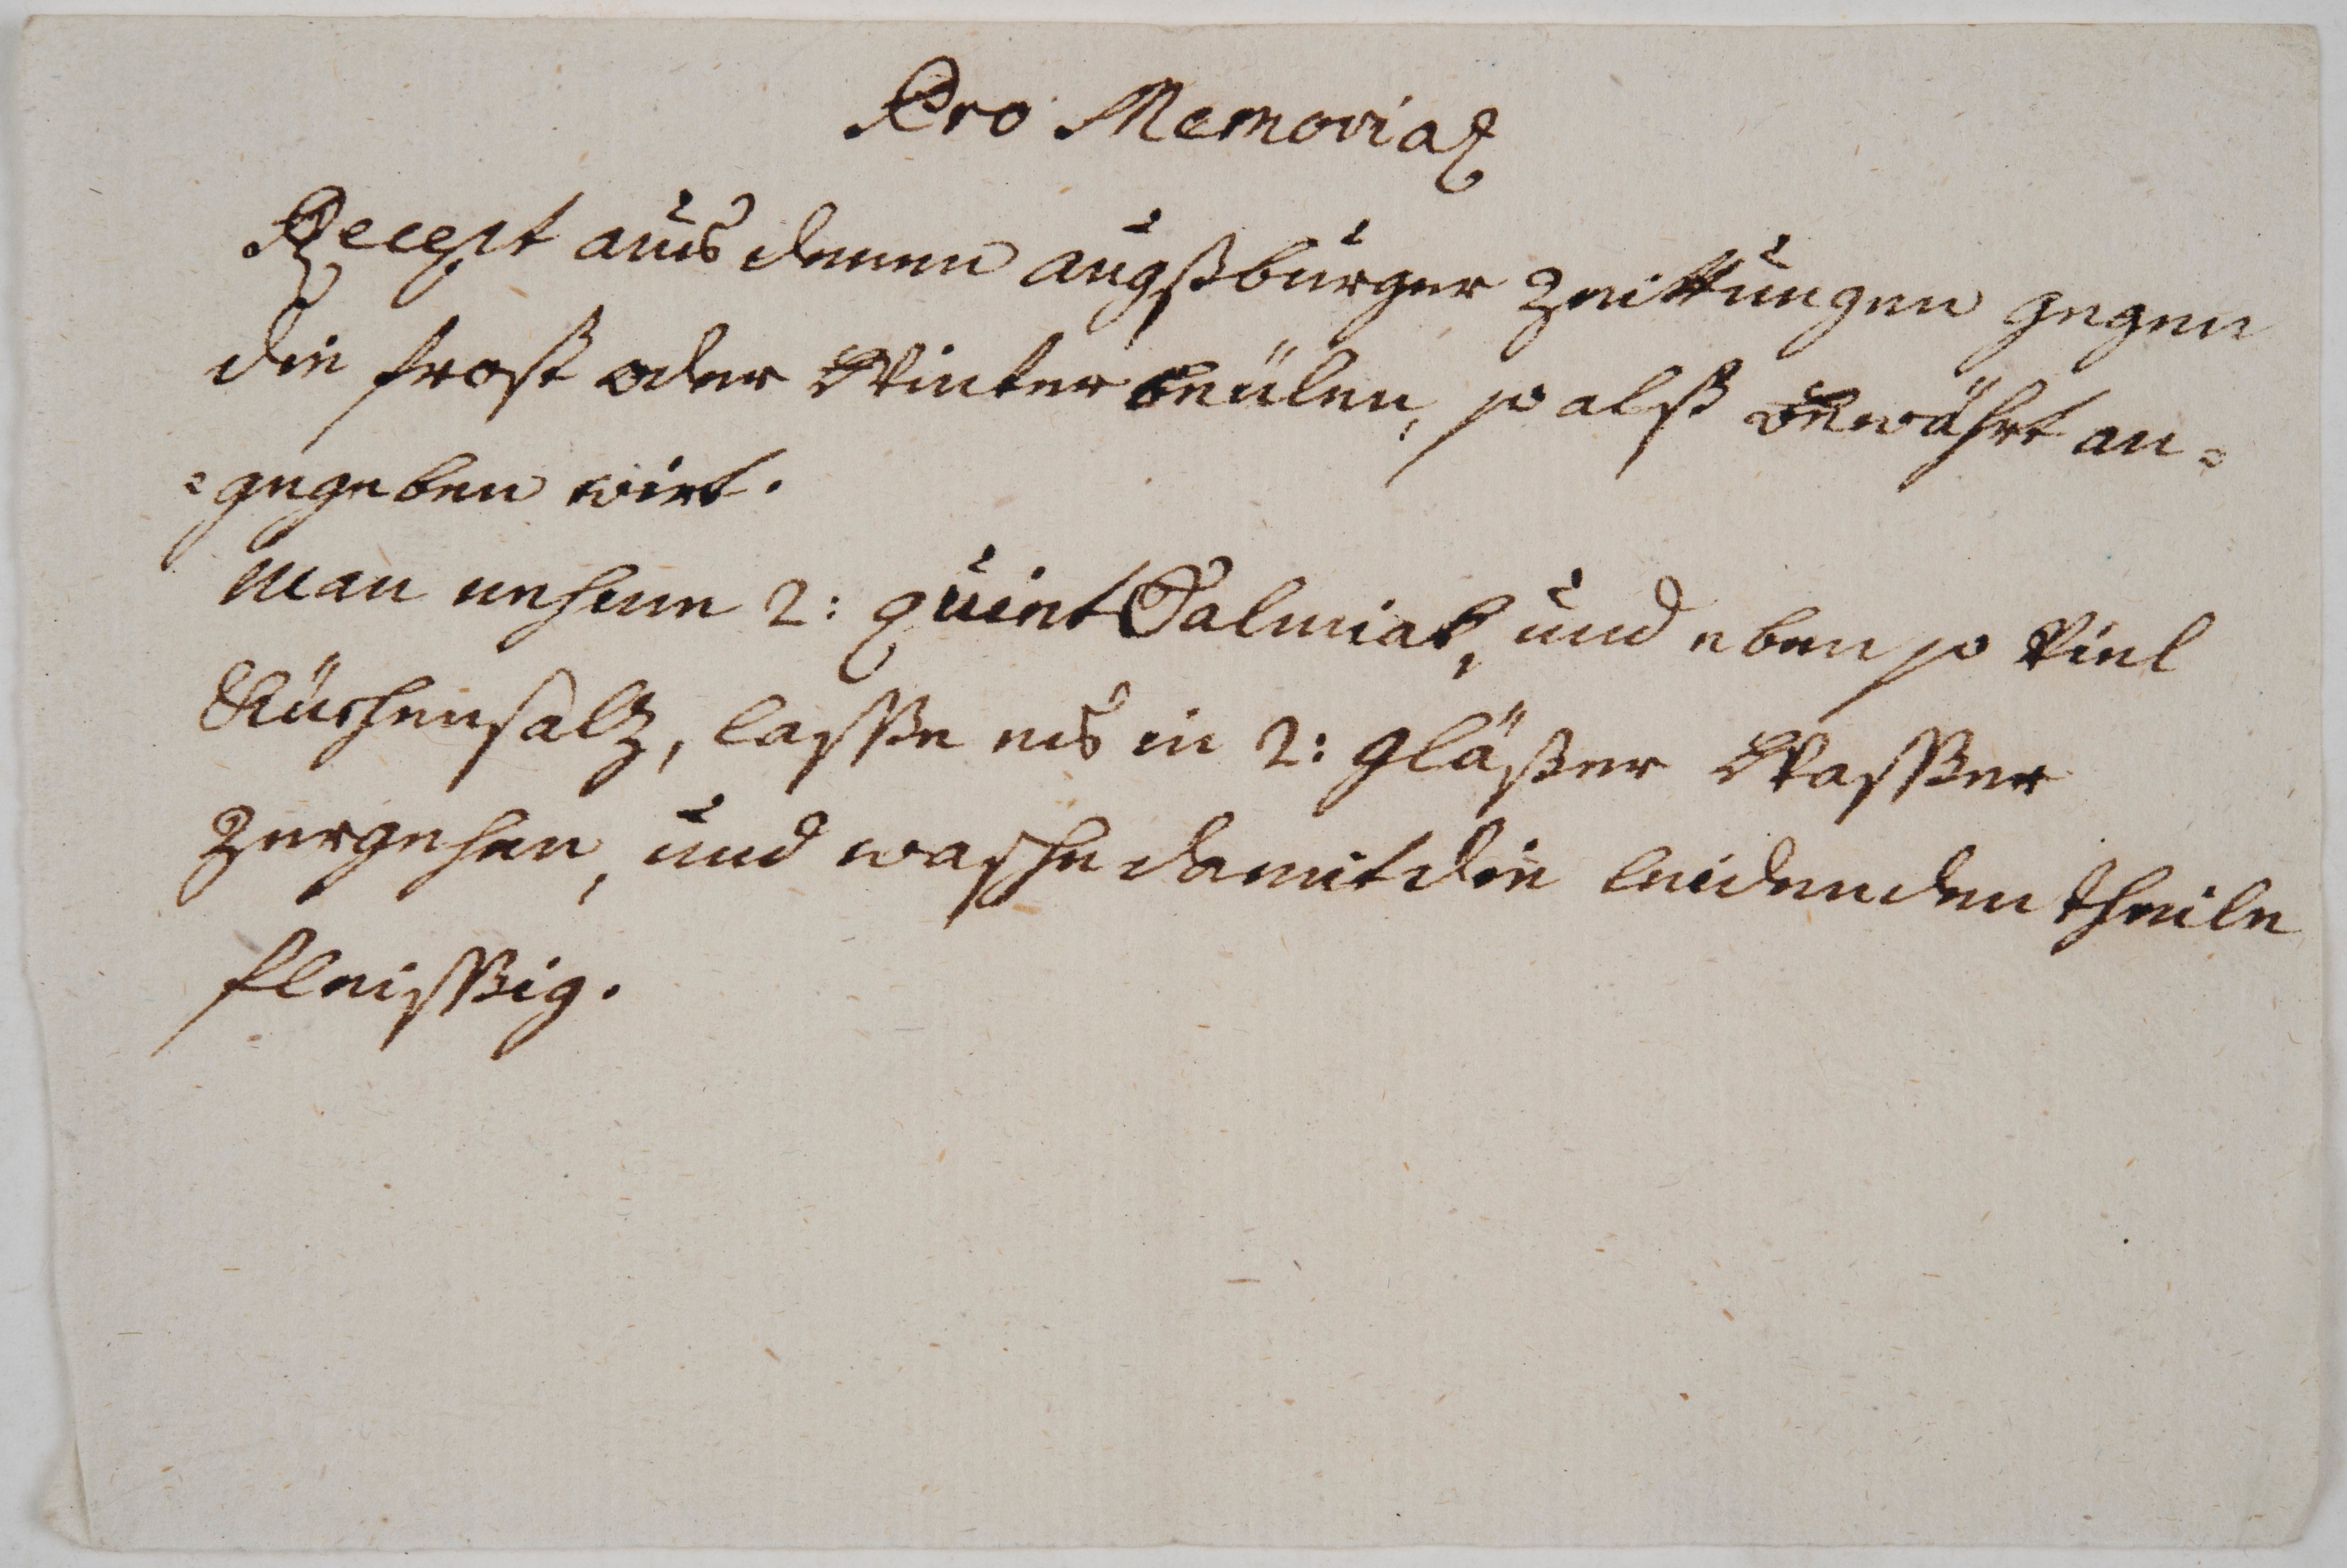 Pro Memoria
Recept aus denen augßburger Zeittungen gegen
die frost oder Winter beülen, so alß bewährt an=
=gegeben wirt.
Man nehme 2: quint Salmiak, und eben so Viel
Küchensaltz, lasße es in 2: gläßer Wasßer
Zergehen, und wasche damit die leidenden theile
fleisßig.